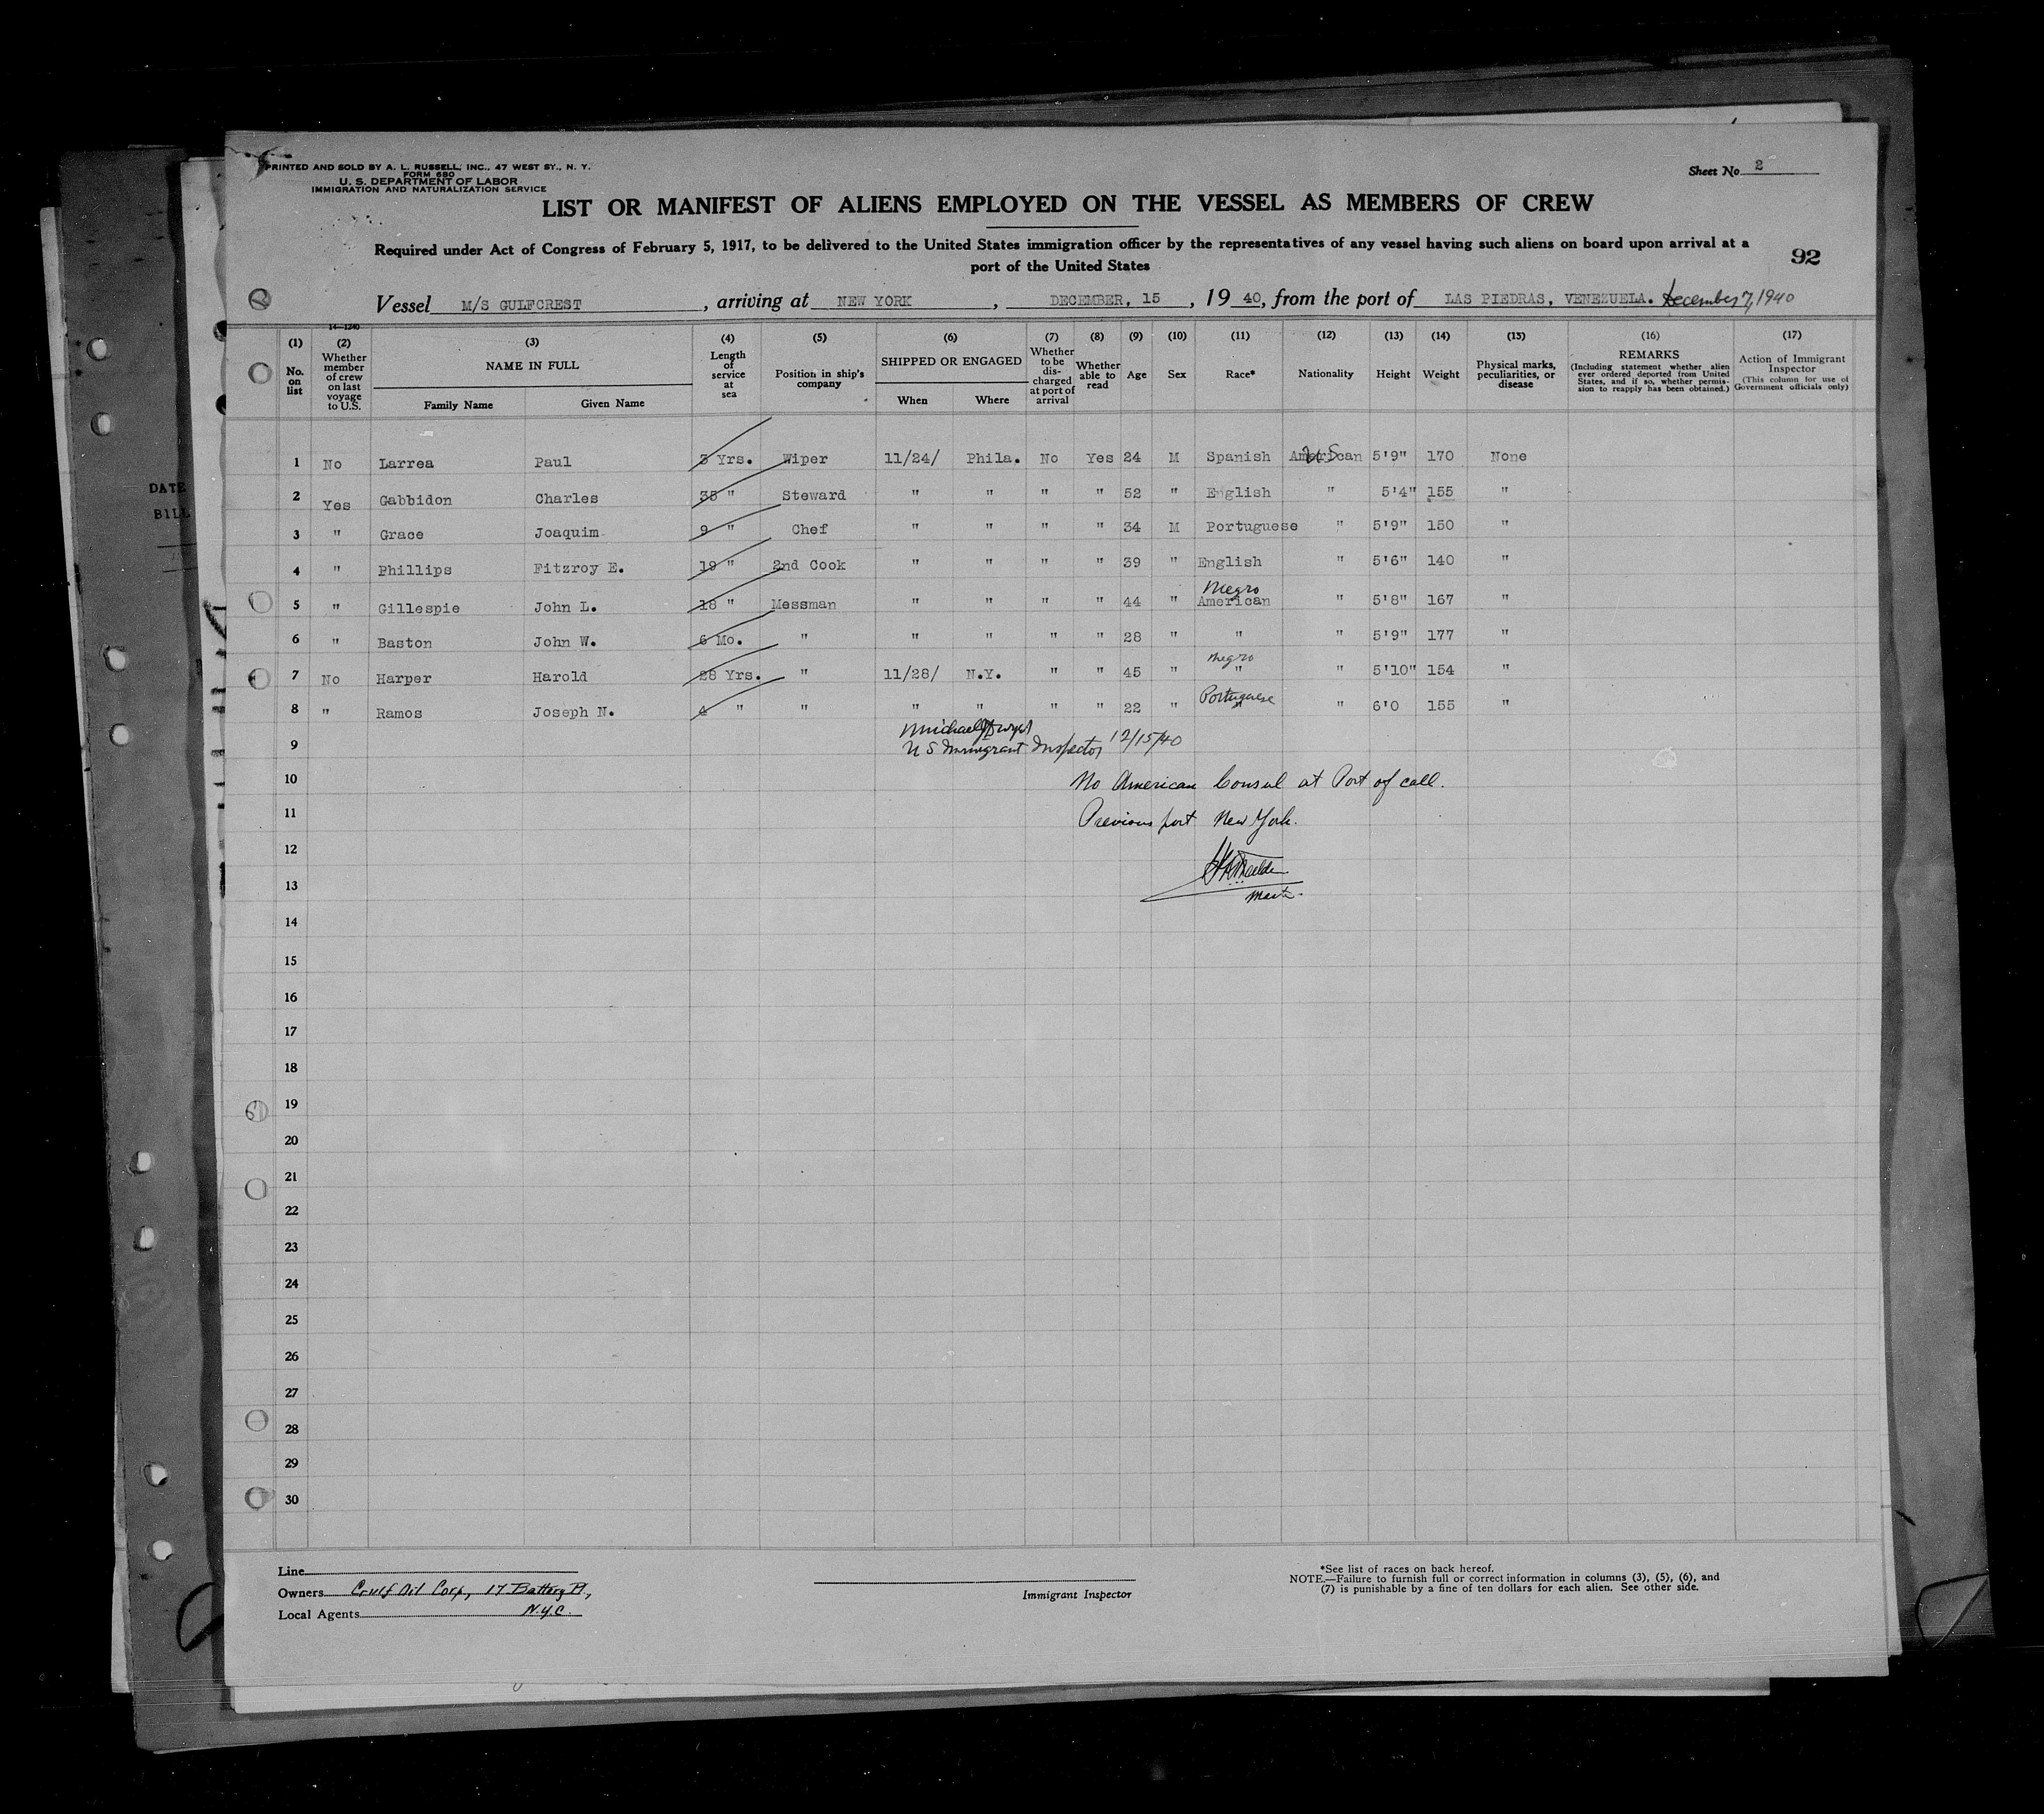 PRINTED AND SOLD BY A. L. RUSSELL, INC., 47 WEST ST., N. Y.
FORM 680
U. S. DEPARTMENT OF LABOR
IMMIGRATION AND NATURALIZATION SERVICE
Sheet No. 2
LIST OR MANIFEST OF ALIENS EMPLOYED ON THE VESSEL AS MEMBERS OF CREW
Required under Act of Congress of February 5, 1917, to be delivered to the United States immigration officer by the representatives of any vessel having such aliens on board upon arrival at a
port of the United States
92
Vessel M/S GULFCREST, arriving at NEW YORK, DECEMBER, 15, 19 40, from the port of LAS PIEDRAS, VENEZUELA. December 7, 1940
14—1240
(1) (2) (3) (4) (5) (6) (7) (8) (9) (10) (11) (12) (13) (14) (15) (16) (17)
No. on list
Whether member of crew on last voyage to U.S.
NAME IN FULL
Family Name Given Name
Length of service at sea
Position in ship's company
SHIPPED OR ENGAGED
When Where
Whether to be discharged at port of arrival
Whether able to read
Age
Sex
Race*
Nationality
Height
Weight
Physical marks, peculiarities, or disease
REMARKS
(Including statement whether alien ever ordered deported from United States, and if so, whether permission to reapply has been obtained.)
Action of Immigrant Inspector
(This column for use of Government officials only)
1 No Larrea Paul 3 Yrs. Wiper 11/24/ Phila. No Yes 24 M Spanish American U S 5'9" 170 None
2 Yes Gabbidon Charles 35 " Steward " " " " 52 " English " 5'4" 155 "
3 " Grace Joaquim 9 " Chef " " " " 34 M Portuguese " 5'9" 150 "
4 " Phillips Fitzroy E. 19 " 2nd Cook " " " " 39 " English " 5'6" 140 "
5 " Gillespie John L. 18 " Messman " " " " 44 " American Negro " 5'8" 167 "
6 " Baston John W. 6 Mo. " " " " " 28 " " " 5'9" 177 "
7 No Harper Harold 28 Yrs. " 11/28/ N.Y. " " 45 " " Negro " 5'10" 154 "
8 " Ramos Joseph N. 4 " " " " " " 22 " Portuguese " 6'0 155 "
9
Michael
U S Immigrant Inspector 12/15/40
10
No American Consul at Port of call.
11
Previous port New York.
12
13
Master
14
15
16
17
18
19
20
21
22
23
24
25
26
27
28
29
30
Line
Owners Gulf Oil Corp, 17 Battery Pl,
Local Agents N.Y.C.
Immigrant Inspector
*See list of races on back hereof.
NOTE.—Failure to furnish full or correct information in columns (3), (5), (6), and
(7) is punishable by a fine of ten dollars for each alien. See other side.
DATE
BILL